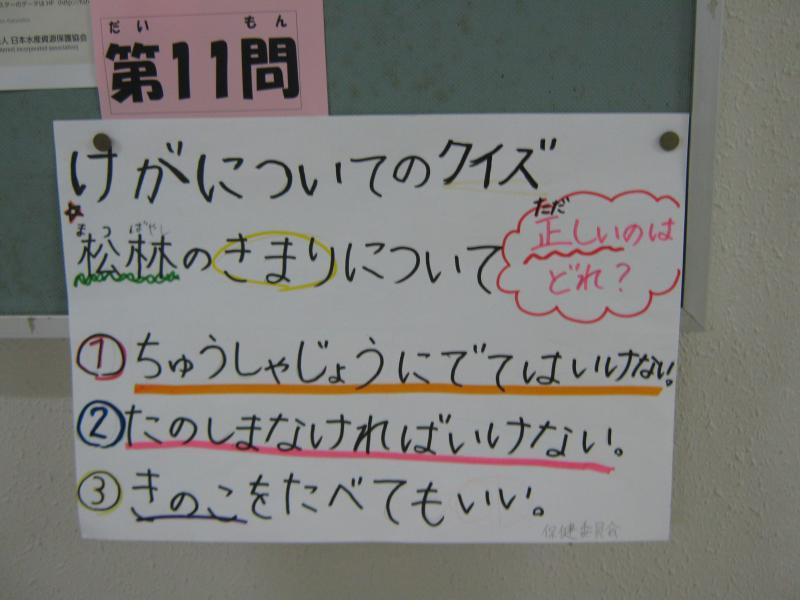 スターのデータは HP (http://
人 日本水産資源保護協会
だい もん
第11問
けがについてのクイズ
まつ ばやし
松林のきまりについて
ただ
正しいのは
どれ？
① ちゅうしゃじょうにでてはいけない。
② たのしまなければいけない。
③ きのこをたべてもいい。
保健委員会